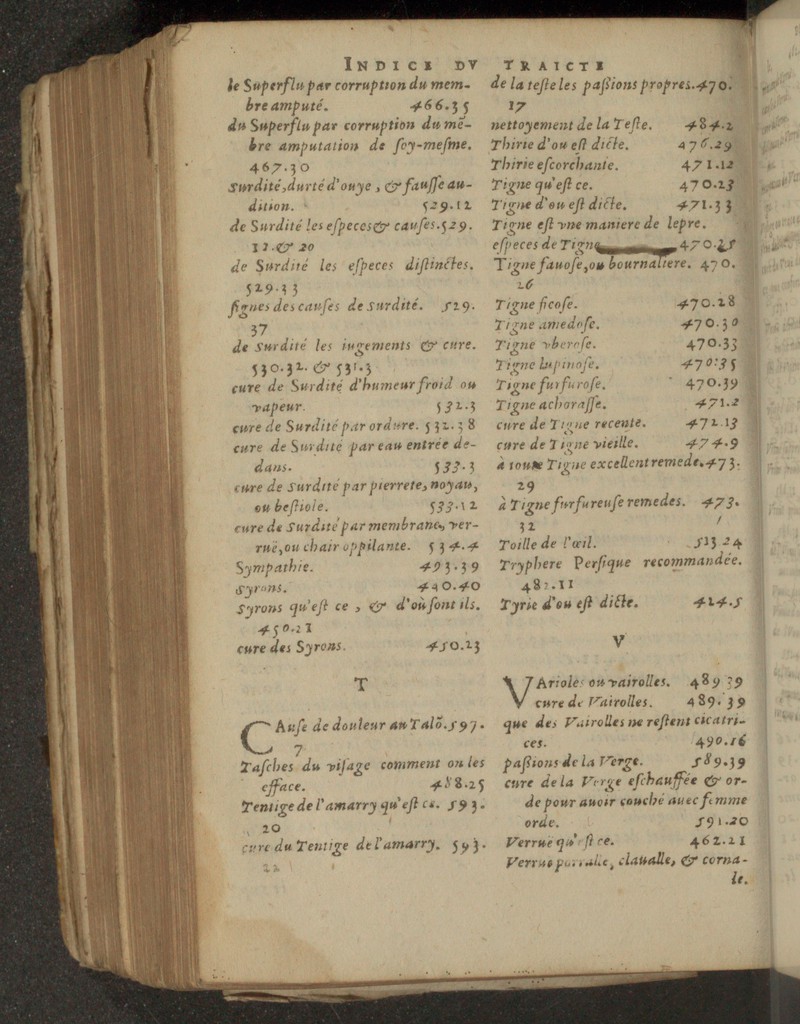 INDICE DV TRAICTE
le Superflu par corruption du mem-
bre amputé. 466.35
du Superflu par corruption du mē-
bre amputation de soy-mesme.
467.30
Surdité, durté d'ouye, & fausse au-
dition. 529.12
de Surdité les especes & causes. 529.
12. & 20
de Surdité les especes distinctes.
529.33
signes des causes de surdité. 529.
37
de surdité les iugements & cure.
530.32. & 531.3
cure de Surdité d'humeur froid ou
vapeur. 532.3
cure de Surdité par ordure. 532.38
cure de Surdité par eau entrée de-
dans. 533.3
cure de surdité par pierrete, noyau,
ou bestiole. 533.12
cure de surdité par membrane, ver-
rué, ou chair oppilante. 534.4
Sympathie. 493.39
Syrons. 440.40
Syrons qu'est ce, & d'où sont ils.
450.21
cure des Syrons. 450.23
T
CAuse de douleur au Talō. 597.
7
Tasches du visage comment on les
efface. 488.25
Tentige de l'amarry qu'est ce. 593.
20
cure du Tentige de l'amarry. 593.
22
de la teste les passions propres. 470.
17
nettoyement de la Teste. 484.2
Thirie d'ou est dicte. 476.29
Thirie escorchante. 471.12
Tigne qu'est ce. 470.23
Tigne d'ou est dicte. 471.33
Tigne est vne maniere de lepre.
especes de Tigne 470.25
Tigne fauose, ou bournaliere. 470.
26
Tigne ficose. 470.28
Tigne amedose. 470.30
Tigne vberose. 470.33
Tigne lupinose. 470.35
Tigne furfurose. 470.39
Tigne achorasse. 471.2
cure de Tigne recente. 472.13
cure de Tigne vieille. 474.9
à toute Tigne excellent remede. 473.
29
à Tigne furfureuse remedes. 473.
32
Toille de l'œil. 513 24
Tryphere Persique recommandée.
482.11
Tyrie d'ou est dicte. 424.5
V
VArioles ou vairolles. 489 39
cure de Vairolles. 489.39
que des Vairolles ne restent cicatri-
ces. 490.16
passions de la Verge. 589.39
cure de la Verge eschauffée & or-
de pour auoir couché auec femme
orde. 591.20
Verrue qu'est ce. 462.21
Verrue porralle, claualle, & corna-
le.